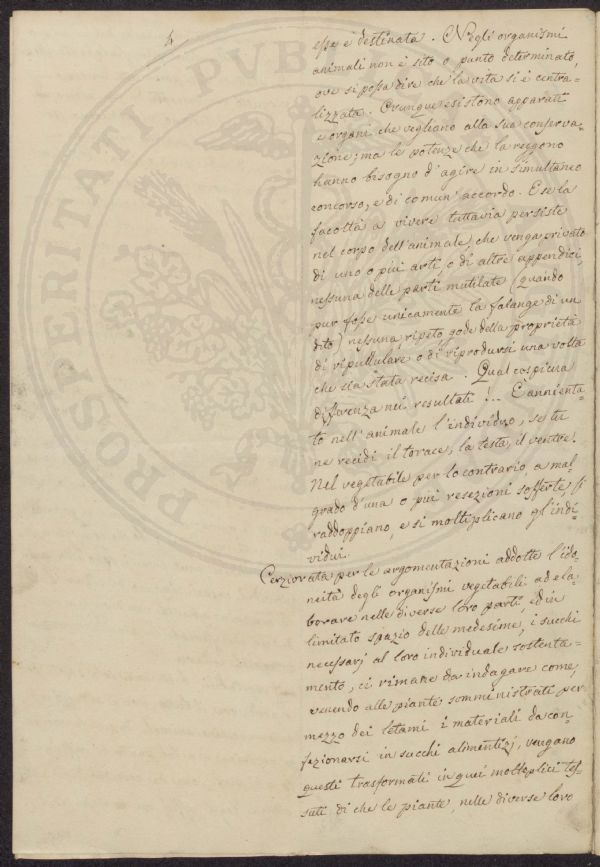 4
esse è destinata. Negli organismi
animali non è sito o punto determinato,
ove si possa dire che la vita si è centra-
lizzata. Ovunque esistono apparati
e organi che vegliano alla sua conserva-
zione; ma le potenze che la reggono
hanno bisogno d'agire in simultaneo
concorso, e di comun' accordo. E se la
facoltà a vivere tuttavia persiste
nel corpo dell'animale, che venga privato
di uno o più arti, o di altre appendici,
nessuna delle parti mutilate (quando
pur fosse unicamente la falange di un
dito) nessuna, ripeto, gode della proprietà
di ripullulare o di riprodursi una volta
che sia stata recisa. Qual cospicua
differenza nei resultati!... È annienta-
to nell'animale l'individuo, se tu
ne recidi il torace, la testa, il ventre!
Nel vegetabile per lo contrario, a mal-
grado d'una o più resezioni sofferte, si
raddoppiano, e si moltiplicano gl'indi-
vidui.
Cerziorata per le argomentazioni addotte l'ido-
neità degli organismi vegetabili ad ela-
borare nelle diverse loro parti, ed in
limitato spazio delle medesime, i succhi
necessarj al loro individuale sostenta-
mento, ci rimane da indagare come,
venendo alle piante somministrati per
mezzo dei letami i materiali da con-
fezionarsi in succhi alimentizj, vengano
questi trasformati in quei moltoplici tes-
suti di che le piante, nelle diverse loro
PROSPERITATI PVB